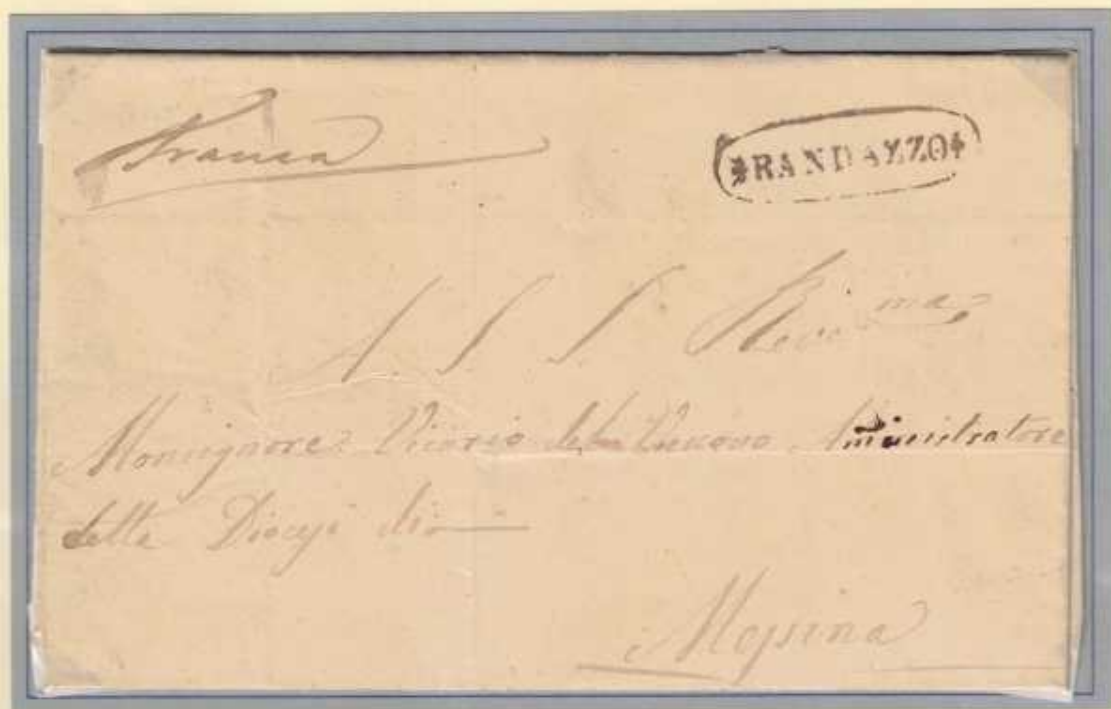 Franca
RANDAZZO
A. S. S. Rev.ma
Monsignore Vicario Amministratore
della Diocesi di
Messina